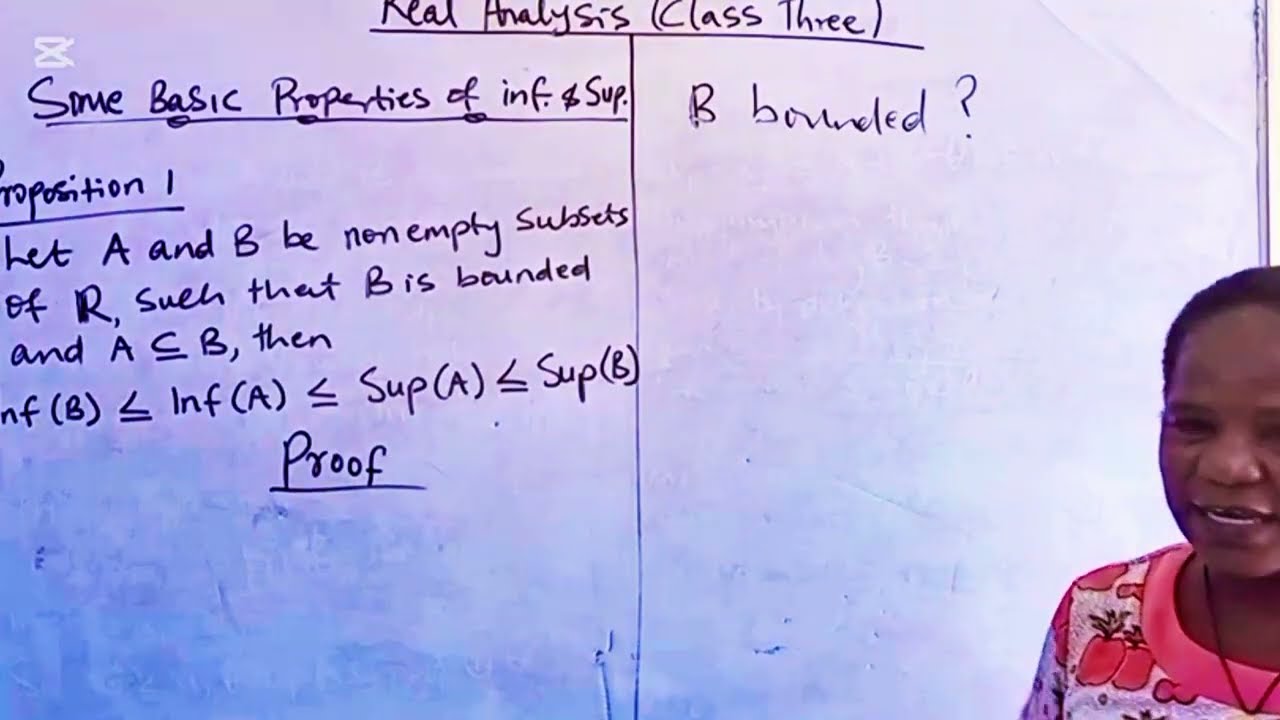 Real Analysis (Class Three)
Some Basic Properties of inf. & Sup.
Proposition 1
Let A and B be nonempty Subsets
of R, Such that B is bounded
and A ⊆ B, then
nf (B) ≤ Inf (A) ≤ Sup (A) ≤ Sup (B)
Proof
B bounded ?